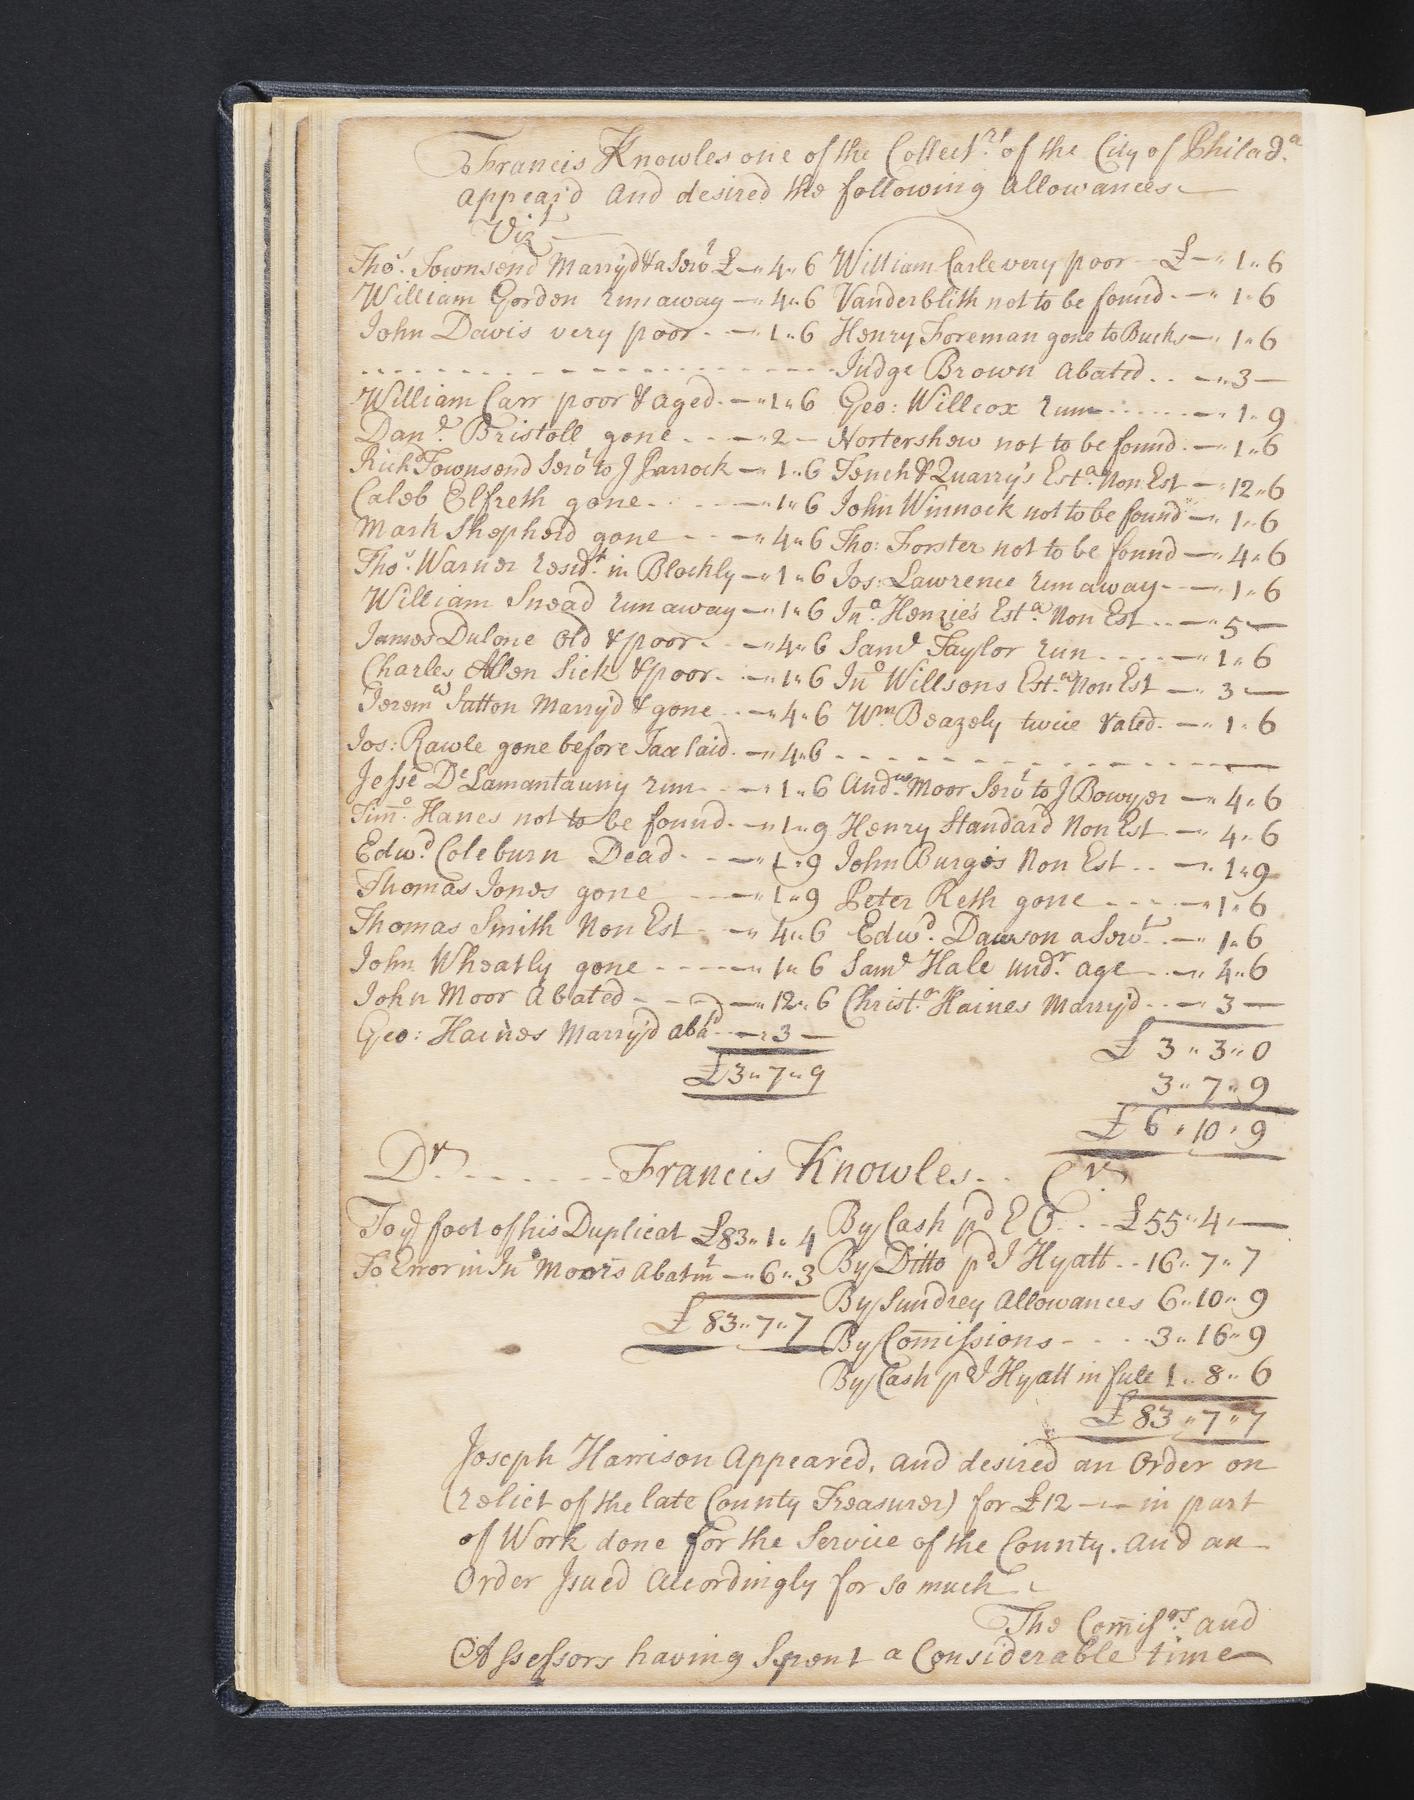 Francis Knowles one of the Collectrs of the City of Philada
appear'd and desired the following allowances
Vizt
Thos. Townsend Marry'd & a Servt £ —„ 4„ 6
William Gorden run away —„ 4„ 6
John Davis very poor - —„ 1„ 6
William Carr poor & aged. —„ 1„ 6
Danll. Bristoll gone - - —„ 2 —
Richd Townsend Servt to J Parrock —„ 1„ 6
Caleb Elfreth gone - - —„ 1„ 6
Mark Shepherd gone - - —„ 4„ 6
Thos. Warner residt. in Blockly —„ 1„ 6
William Snead run away —„ 1„ 6
James Dulone old & poor - - —„ 4„ 6
Charles Allen Sick & poor - —„ 1„ 6
Jerema Sutton Marry'd & gone - - —„ 4„ 6
Jos: Rawle gone before Tax laid. —„ 4„ 6
Jesse De Lamantauny run - - —„ 1„ 6
Timo. Hanes not to be found. —„ 1„ 9
Edwd. Coleburn Dead - - —„ 1„ 9
Thomas Jones gone - - —„ 1„ 9
Thomas Smith Non Est - —„ 4„ 6
John Wheatly gone - - - —„ 1„ 6
John Moor Abated - - - —„ 12„ 6
Geo: Haines Marry'd abatd - —„ 3 —
£3„ 7„ 9
William Carle very poor - £ —„ 1„ 6
Vanderblith not to be found. —„ 1„ 6
Henry Foreman gone to Bucks —„ 1„ 6
Judge Brown abated . . —„ 3 —
Geo: Willcox run - - - - —„ 1„ 9
Nortershew not to be found. —„ 1„ 6
Tench & Quarry's Esta. Non Est —„ 12„ 6
John Winnock not to be found —„ 1„ 6
Tho: Forster not to be found —„ 4„ 6
Jos: Lawrence run away - - —„ 1„ 6
Jno. Henzie's Esta. Non Est . . —„ 5 —
Saml Taylor run - - - - —„ 1„ 6
Jno Willsons Esta. Non Est —„ 3 —
Wm. Beazely twice rated. —„ 1„ 6
Andw. Moor Servt to J Bowyer —„ 4„ 6
Henry Standard Non Est - —„ 4„ 6
John Burges Non Est . . —„ 1„ 9
Peter Reth gone - - - —„ 1„ 6
Edwd. Dawson a Servt - —„ 1„ 6
Saml Hale undr. age - - —„ 4„ 6
Christr. Haines Marry'd - - —„ 3 —
£ 3„ 3„ 0
3„ 7„ 9
£ 6„ 10„ 9
Dr - - - - - - Francis Knowles - - Cr
To ye foot of his Duplicat £83„ 1„ 4
To Error in Jno Moor's Abatmt —„ 6„ 3
£ 83„ 7„ 7
By Cash pd E O - - £55„ 4„ —
By Ditto pd J Hyatt - - 16„ 7„ 7
By Sundrey Allowances 6„ 10„ 9
By Com̄issions - - - 3„ 16„ 9
By Cash pd J Hyatt in full 1„ 8„ 6
£ 83„ 7„ 7
Joseph Harrison Appeared, and desired an Order on
(relict of the late County Treasurer) for £12 —„— in part
of Work done for the Service of the County. and an
Order Isued accordingly for so much
The Com̄isrs. and
Assessors having Spent a Considerable time